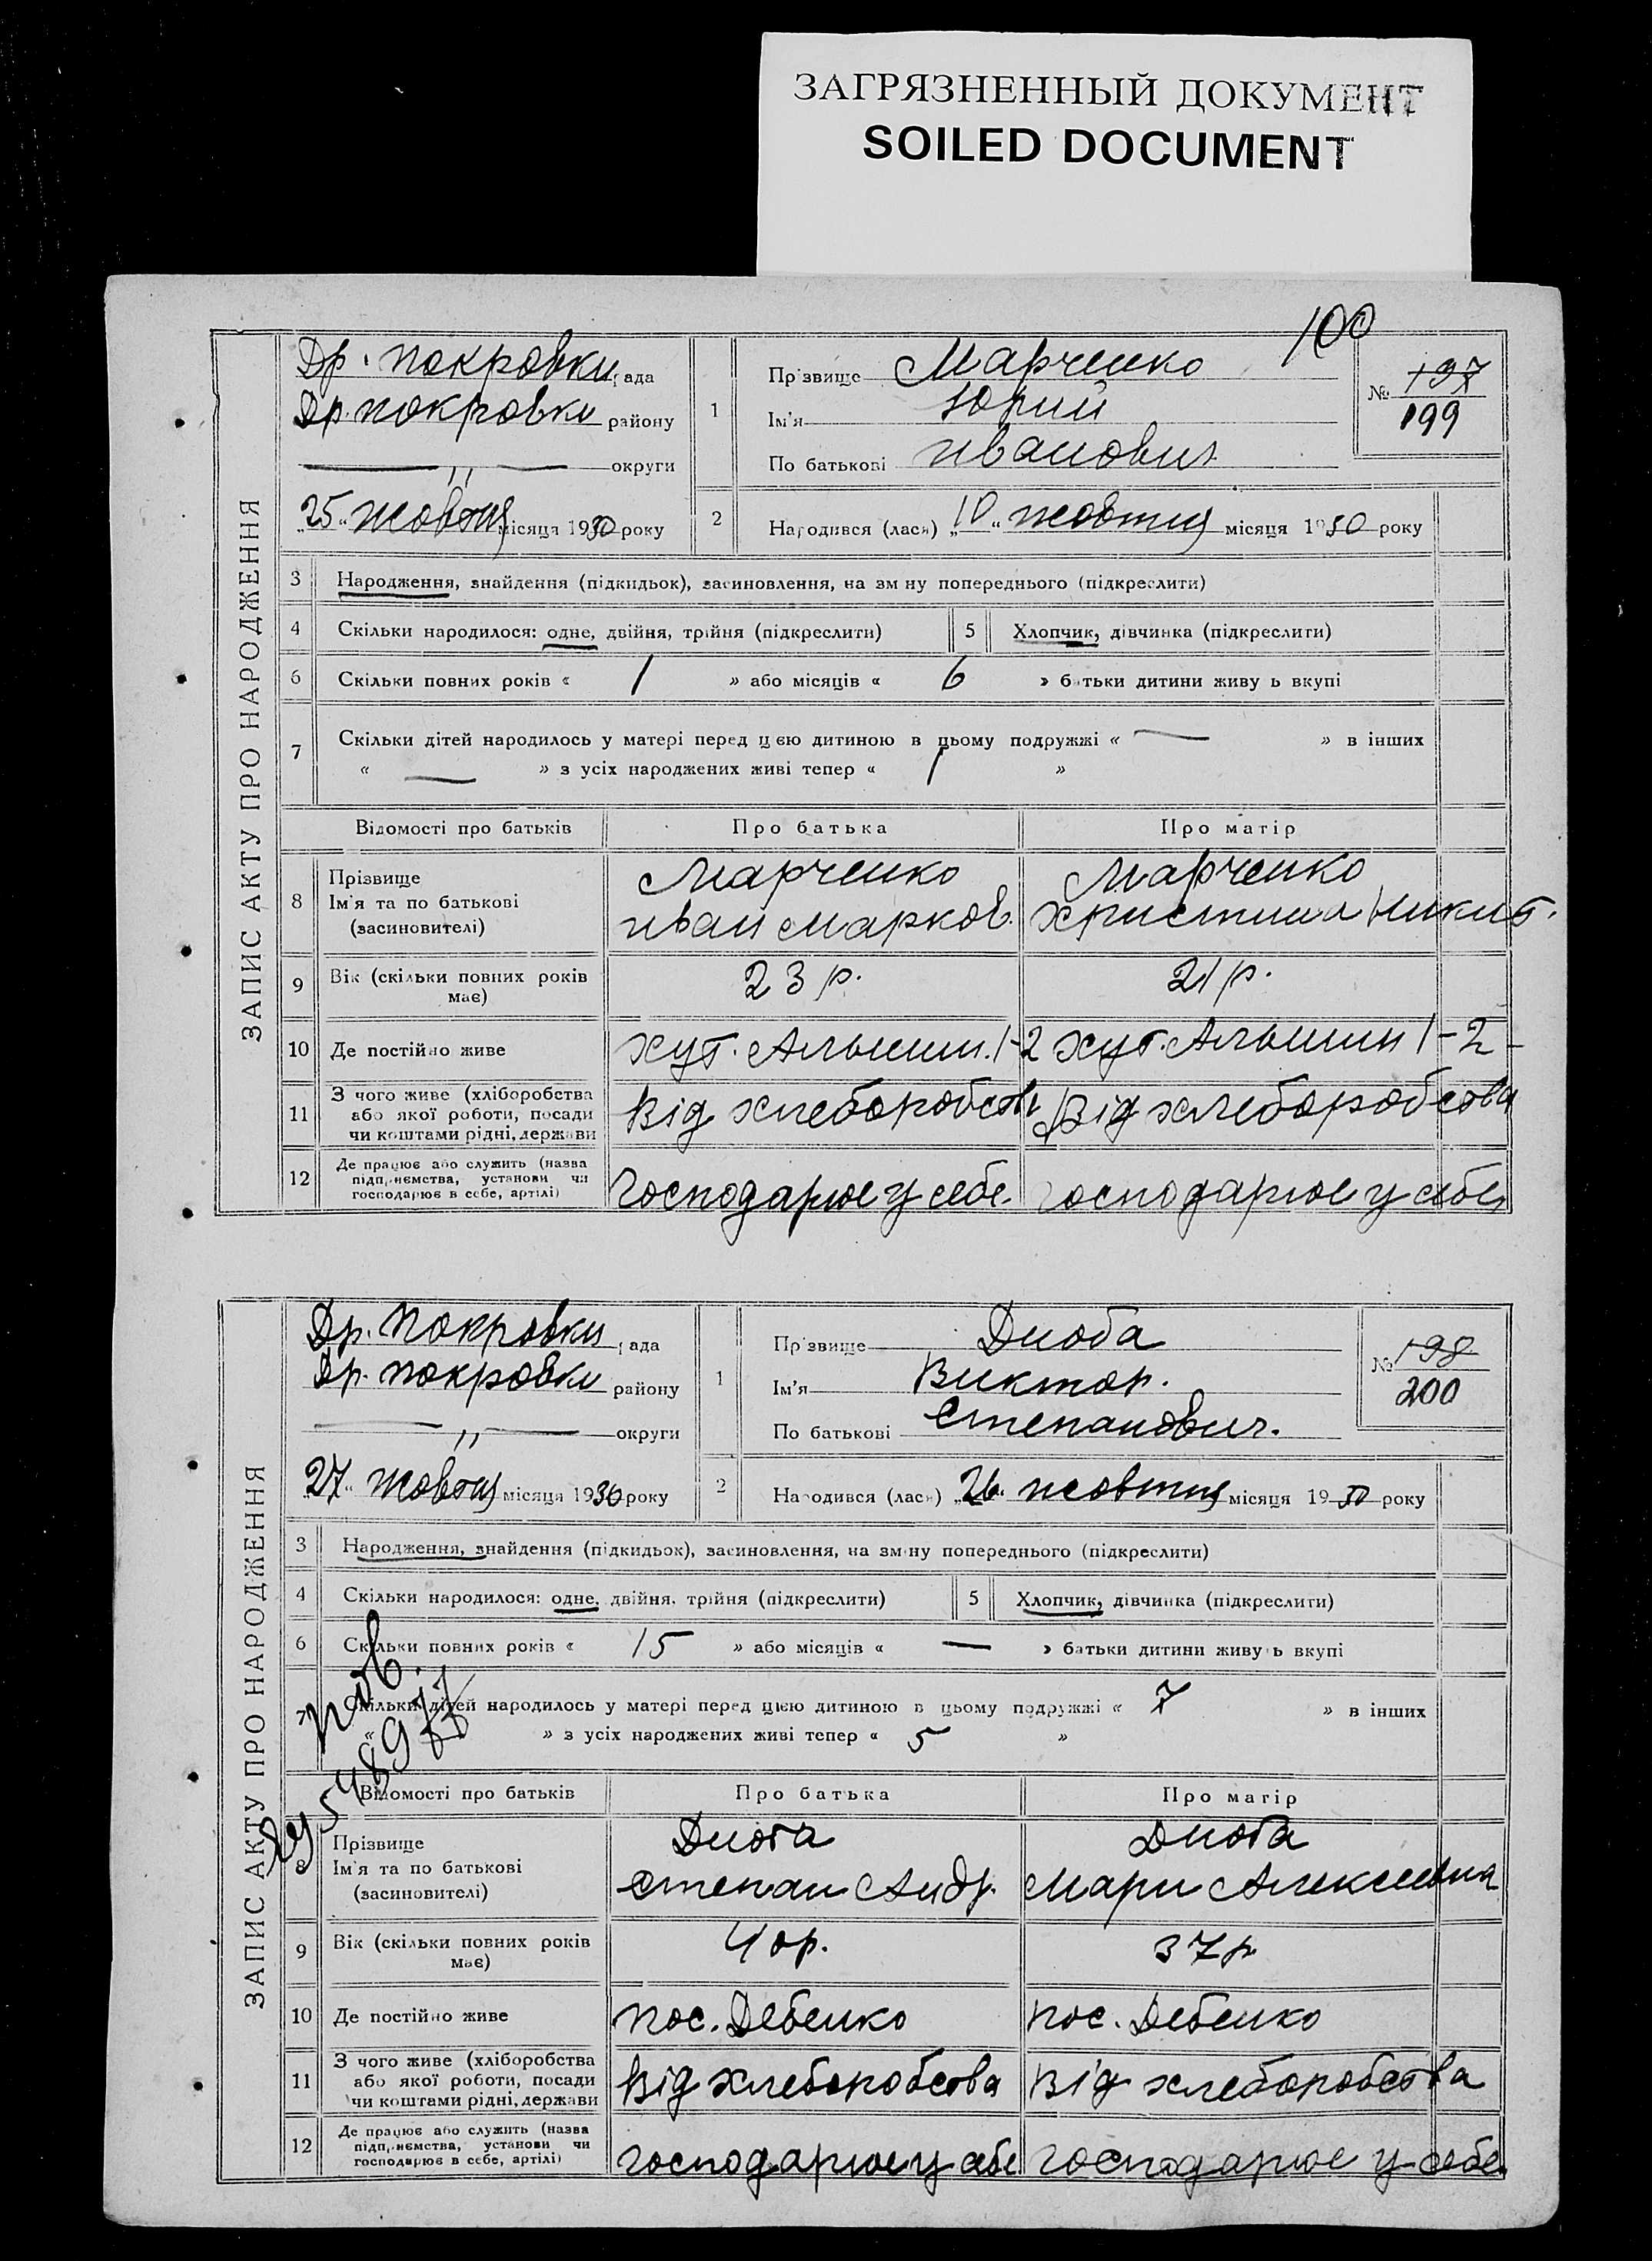 ЗАГРЯЗНЕННЫЙ ДОКУМЕНТ
SOILED DOCUMENT
100
ЗАПИС АКТУ ПРО НАРОДЖЕННЯ
Др. покровки рада
Др. покровки району
— " — округи
"25" жовтня місяця 1930 року
1
Прізвище Марченко
Ім'я Юрий
По батькові иванович
№ 197
199
2
Народився (лася) "10" жовтня місяця 1930 року
3 Народження, знайдення (підкидьок), засиновлення, на зміну попереднього (підкреслити)
4 Скільки народилося: одне, двійня, трійня (підкреслити) 5 Хлопчик, дівчинка (підкреслити)
6 Скільки повних років « 1 » або місяців « 6 » батьки дитини живуть вкупі
7 Скільки дітей народилось у матері перед цією дитиною в цьому подружжі « — » в інших
« — » з усіх народжених живі тепер « 1 »
Відомості про батьків Про батька Про матір
8 Прізвище
Ім'я та по батькові
(засиновителі)
Марченко
иван марков.
Марченко
христина Никит.
9 Вік (скільки повних років
має)
23 р.
21 р.
10 Де постійно живе
хут. 1-2
хут. 1-2
11 З чого живе (хліборобства
або якої роботи, посади
чи коштами рідні, держави
Від хлеборобств
Від хлеборобства
12 Де працює або служить (назва
підприємства, установи чи
господарює в себе, артілі)
господарює у себе.
господарює у себе
ЗАПИС АКТУ ПРО НАРОДЖЕННЯ
Др. Покровки рада
Др. покровки району
— " — округи
"27" жовтня місяця 1930 року
1
Прізвище Дзюба
Ім'я Виктор.
По батькові Степанович.
№ 198
200
2
Народився (лася) "26" жовтня місяця 1930 року
3 Народження, знайдення (підкидьок), засиновлення, на зміну попереднього (підкреслити)
4 Скільки народилося: одне, двійня, трійня (підкреслити) 5 Хлопчик, дівчинка (підкреслити)
6 Скільки повних років « 15 » або місяців « — » батьки дитини живуть вкупі
7 Скільки дітей народилось у матері перед цією дитиною в цьому подружжі « 7 » в інших
« » з усіх народжених живі тепер « 5 »
Відомості про батьків Про батька Про матір
8 Прізвище
Ім'я та по батькові
(засиновителі)
Дзюба
степан Андр.
Дзюба
Мари Алексеевна
9 Вік (скільки повних років
має)
40 р.
37 р
10 Де постійно живе
пос. Дебенко
пос. Дебенко
11 З чого живе (хліборобства
або якої роботи, посади
чи коштами рідні, держави
Від хлеборобства
Від хлеборобства
12 Де працює або служить (назва
підприємства, установи чи
господарює в себе, артілі)
господарює у себе
господарює у себе.